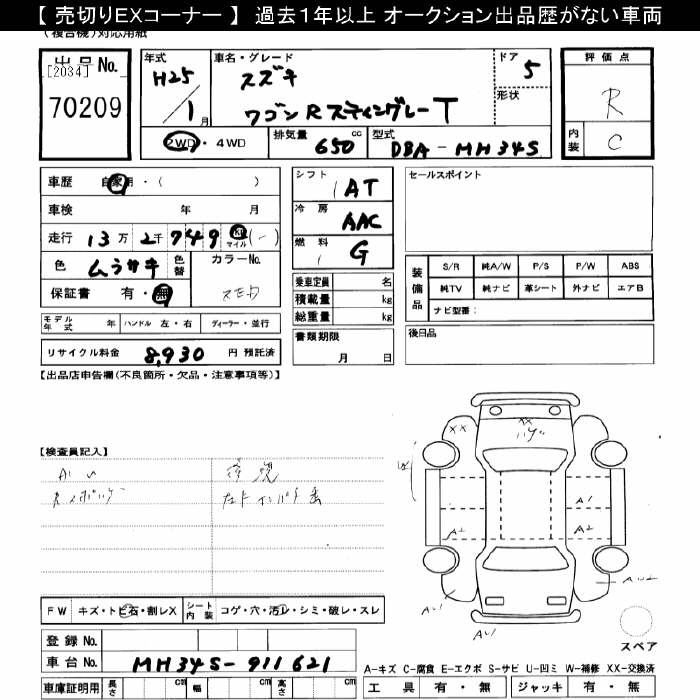 【 売切りEXコーナー 】 過去1年以上 オークション出品歴がない車両
(複合機)対応用紙
出品No.
[2034]
70209
年式 H25 / 1月
車名・グレード
スズキ
ワゴンRスティングレーT
ドア 5
形状
評価点
R
内装 C
2WD・4WD
排気量 650 cc
型式 DBA-MH34S
車歴 自家用・( )
車検 年 月
走行 13万 2千 749 km マイル (-)
色 ムラサキ 色替 カラーNo.
保証書 有・無
モデル年式 年 ハンドル 左・右 ディーラー・並行
リサイクル料金 8,930 円 預託済
シフト AT
冷房 AAC
燃料 G
乗車定員 名
積載量 kg
総重量 kg
書類期限
月 日
セールスポイント
装備品
S/R 純A/W P/S P/W ABS
純TV 純ナビ 革シート 外ナビ エアB
ナビ型番:
後日品
【出品店申告欄(不良箇所・欠品・注意事項等)】
【検査員記入】
XX
XX
A1
A2
A2
FW キズ・トビ石・割レX シート内装 コゲ・穴・汚レ・シミ・破レ・スレ
登録No.
車台No. MH34S-911621
車庫証明用 長さ cm 幅 cm 高さ cm
スペア
A-キズ C-腐食 E-エクボ S-サビ U-凹ミ W-補修 XX-交換済
工具 有・無 ジャッキ 有・無